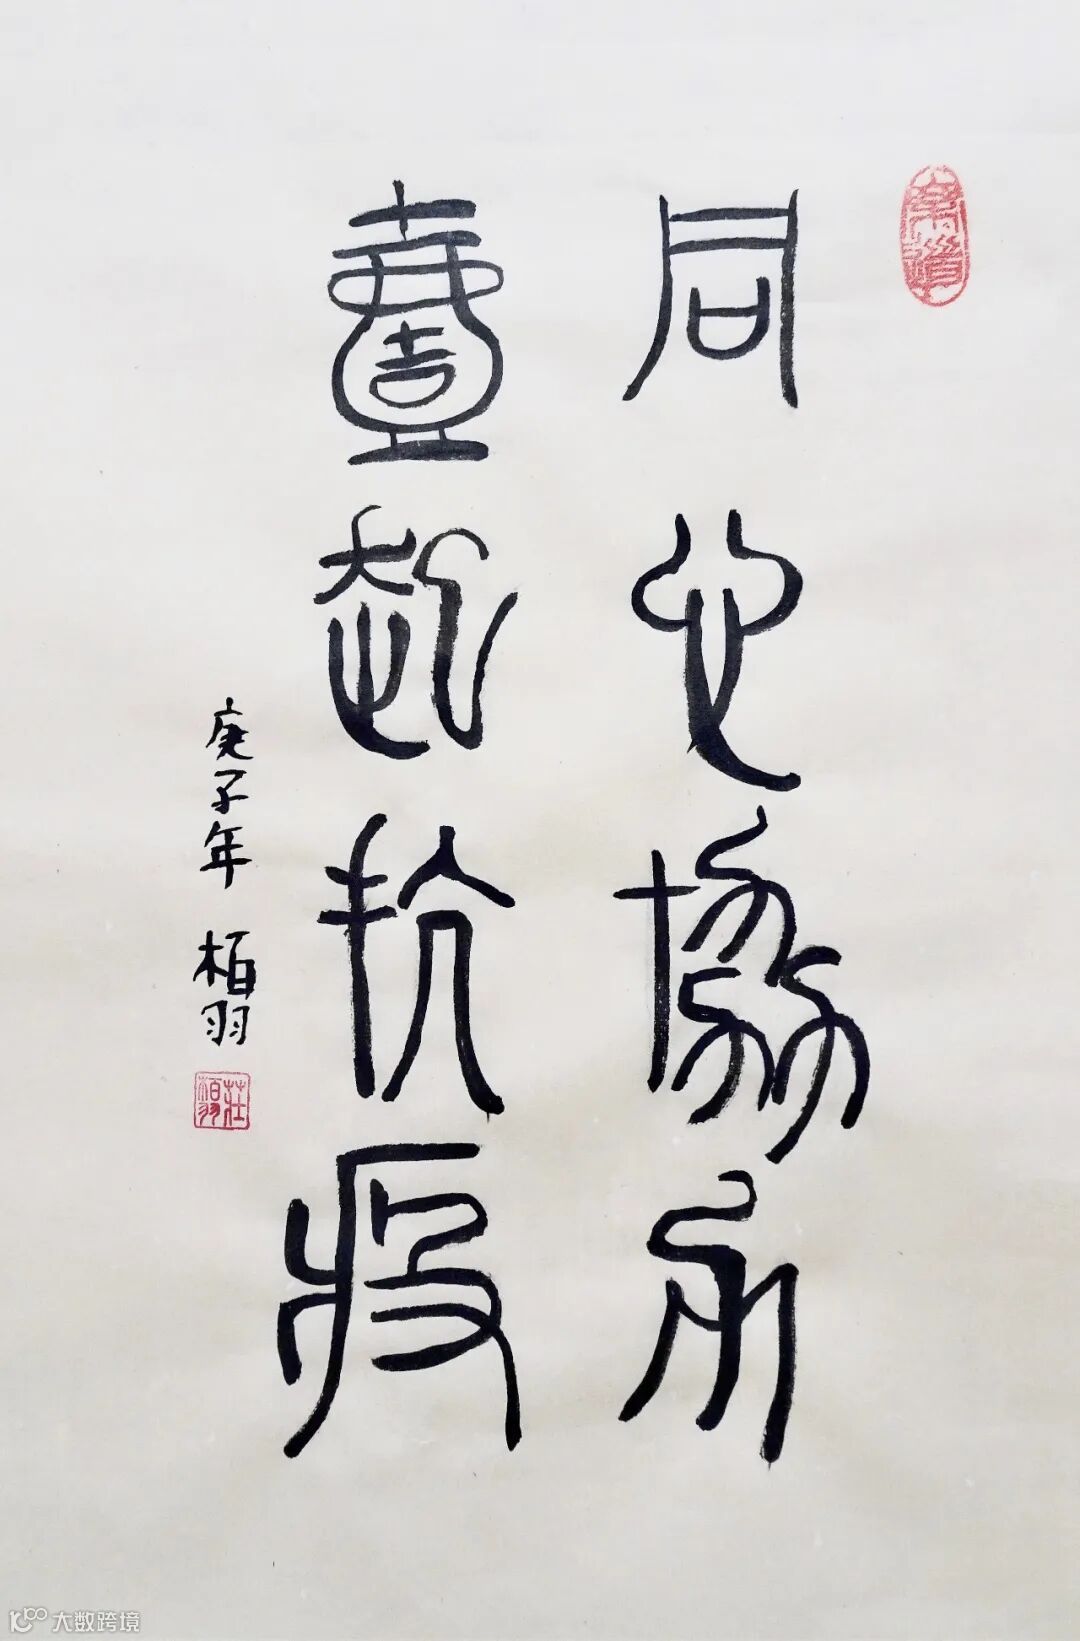 同心協力
壹起抗疫
庚子年 柏羽
莊柏羽
大数跨境